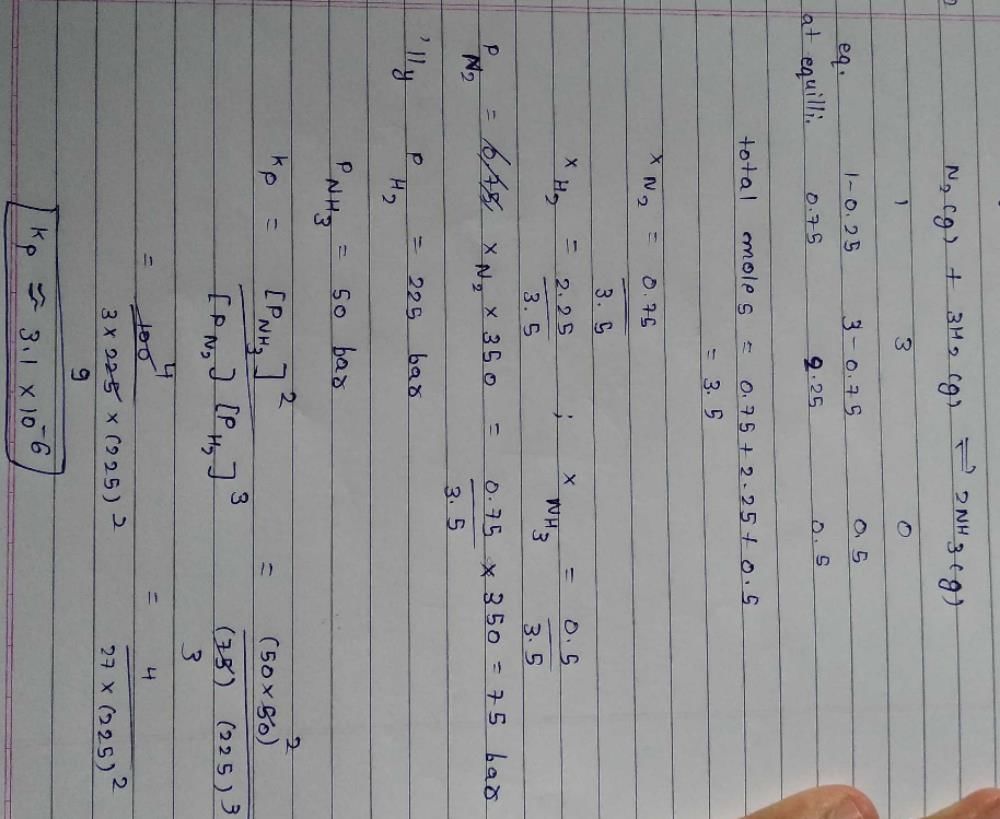 N₂(g) + 3H₂(g) ⇌ 2NH₃(g)
1 3 0
eq. 1-0.25 3-0.75 0.5
at equilli. 0.75 2.25 0.5
total moles = 0.75 + 2.25 + 0.5
= 3.5
x N₂ = 0.75 / 3.5
x H₂ = 2.25 / 3.5 ; x NH₃ = 0.5 / 3.5
P N₂ = x N₂ × 350 = 0.75 / 3.5 × 350 = 75 bar
'lly P H₂ = 225 bar
P NH₃ = 50 bar
Kp = [P NH₃]² / [P N₂] [P H₂]³ = (50 × 50)² / (75) (225)³
3
= 100 4 / 3 × 225 × (225)² = 4 / 27 × (225)²
9
Kp ≈ 3.1 × 10⁻⁶